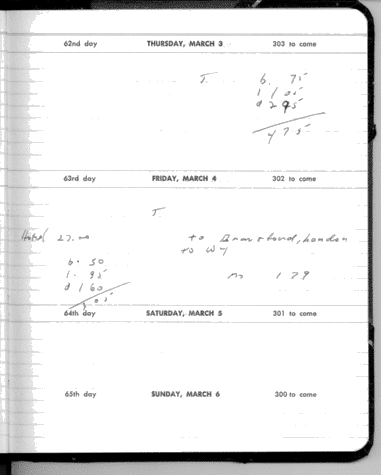 62nd day THURSDAY, MARCH 3 303 to come
T. b. 75
l 1 05
d 2 95
4 75
63rd day FRIDAY, MARCH 4 302 to come
T
Hotel 27.00 to London
to WY
b. 50 m 179
l. 95
d 1 60
3 05
64th day SATURDAY, MARCH 5 301 to come
65th day SUNDAY, MARCH 6 300 to come